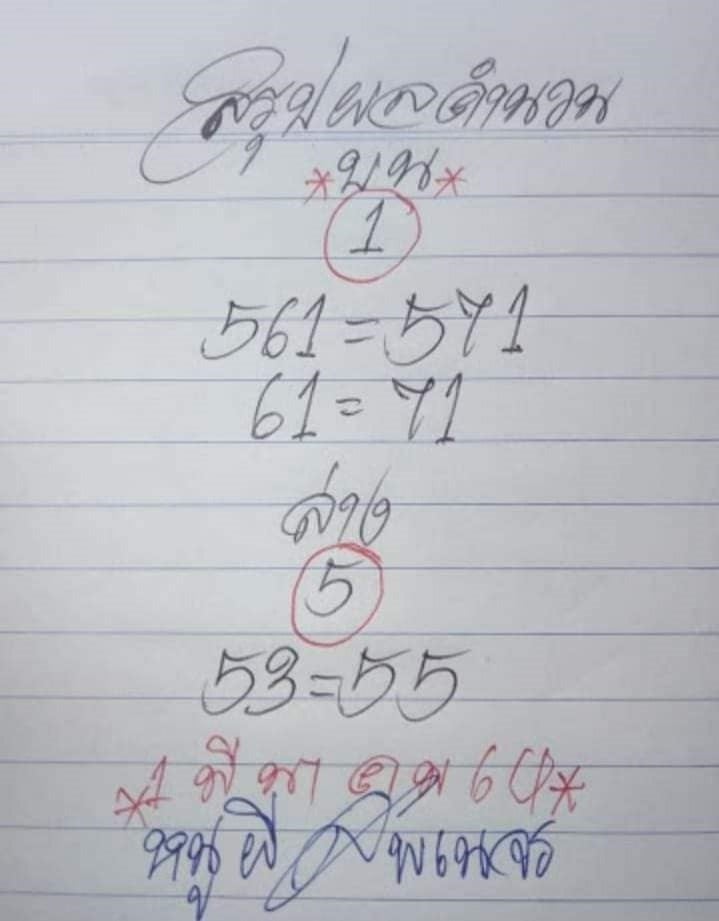 สรุปผลคำนวน
*บน*
1
561=571
61=71
ล่าง
5
53=55
*1 มีนาคม 64*
หนูผี